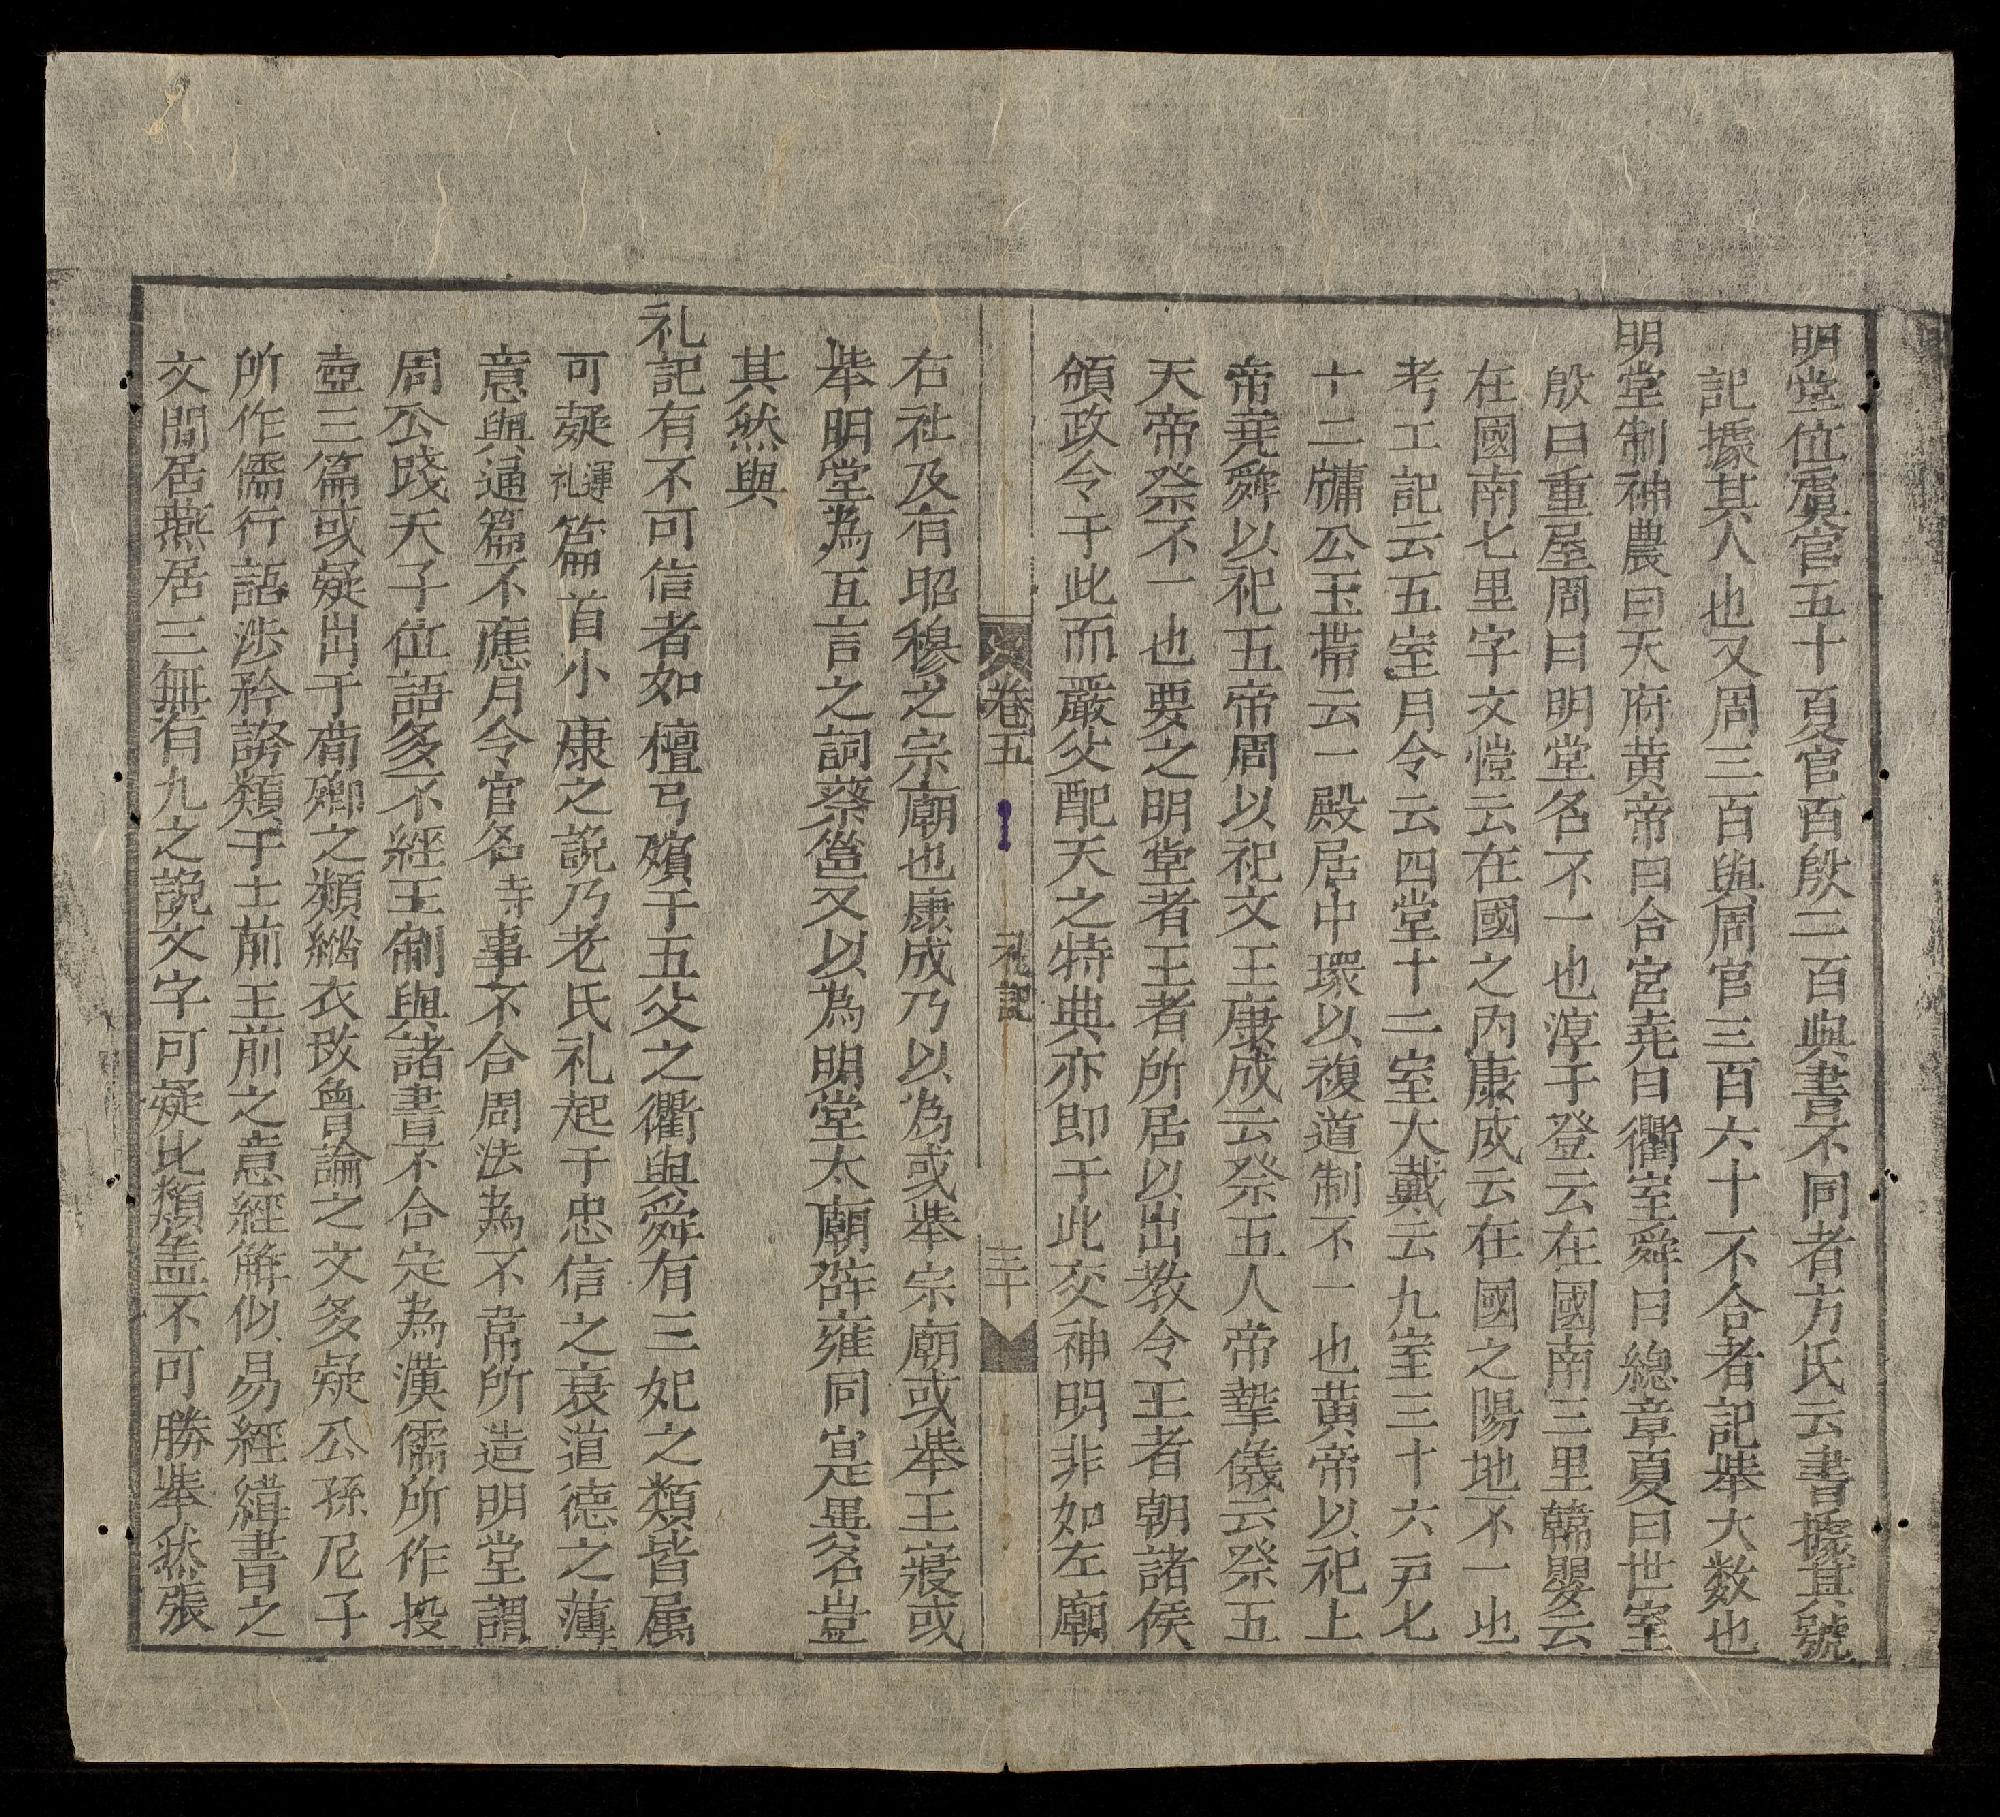 明堂位虞官五十夏官百殷二百與書不同者方氏云書據其號
記據其人也又周三百與周官三百六十不合者記舉大数也
明堂制神農曰天府黄帝曰合宮堯曰衢室舜曰總章夏曰世室
殷曰重屋周曰明堂名不一也淳于登云在國南三里韓嬰云
在國南七里字文愷云在國之内康成云在國之陽地不一也
考工記云五室月令云四堂十二室大戴云九室三十六戸七
十二牖公玉帶云一殿居中環以複道制不一也黄帝以祀上
帝堯舜以祀五帝周以祀文王康成云祭五人帝摯儀云祭五
天帝祭不一也要之明堂者王者所居以出教令王者朝諸侯
頒政令于此而嚴父配天之特典亦即于此交神明非如左廟
卷五 礼記 三十
右社及有昭穆之宗廟也康成乃以為或舉宗廟或舉王寢或
舉明堂為互言之詞蔡邕又以為明堂太廟辟雍同寔異名豈
其然與
礼記有不可信者如檀弓殯于五父之衢與舜有三妃之類皆属
可疑礼運篇首小康之說乃老氏礼起于忠信之衰道德之薄
意與通篇不應月令官名寺事不合周法為不韋所造明堂謂
周公踐天子位語多不經王制與諸書不合定為漢儒所作投
壺三篇或疑出于荀卿之類緇衣攷魯論之文多疑公孫尼子
所作儒行語涉矜誇類于士前王前之意經解似易經緯書之
文閒居燕居三無有九之說文字可疑比類盖不可勝舉然張